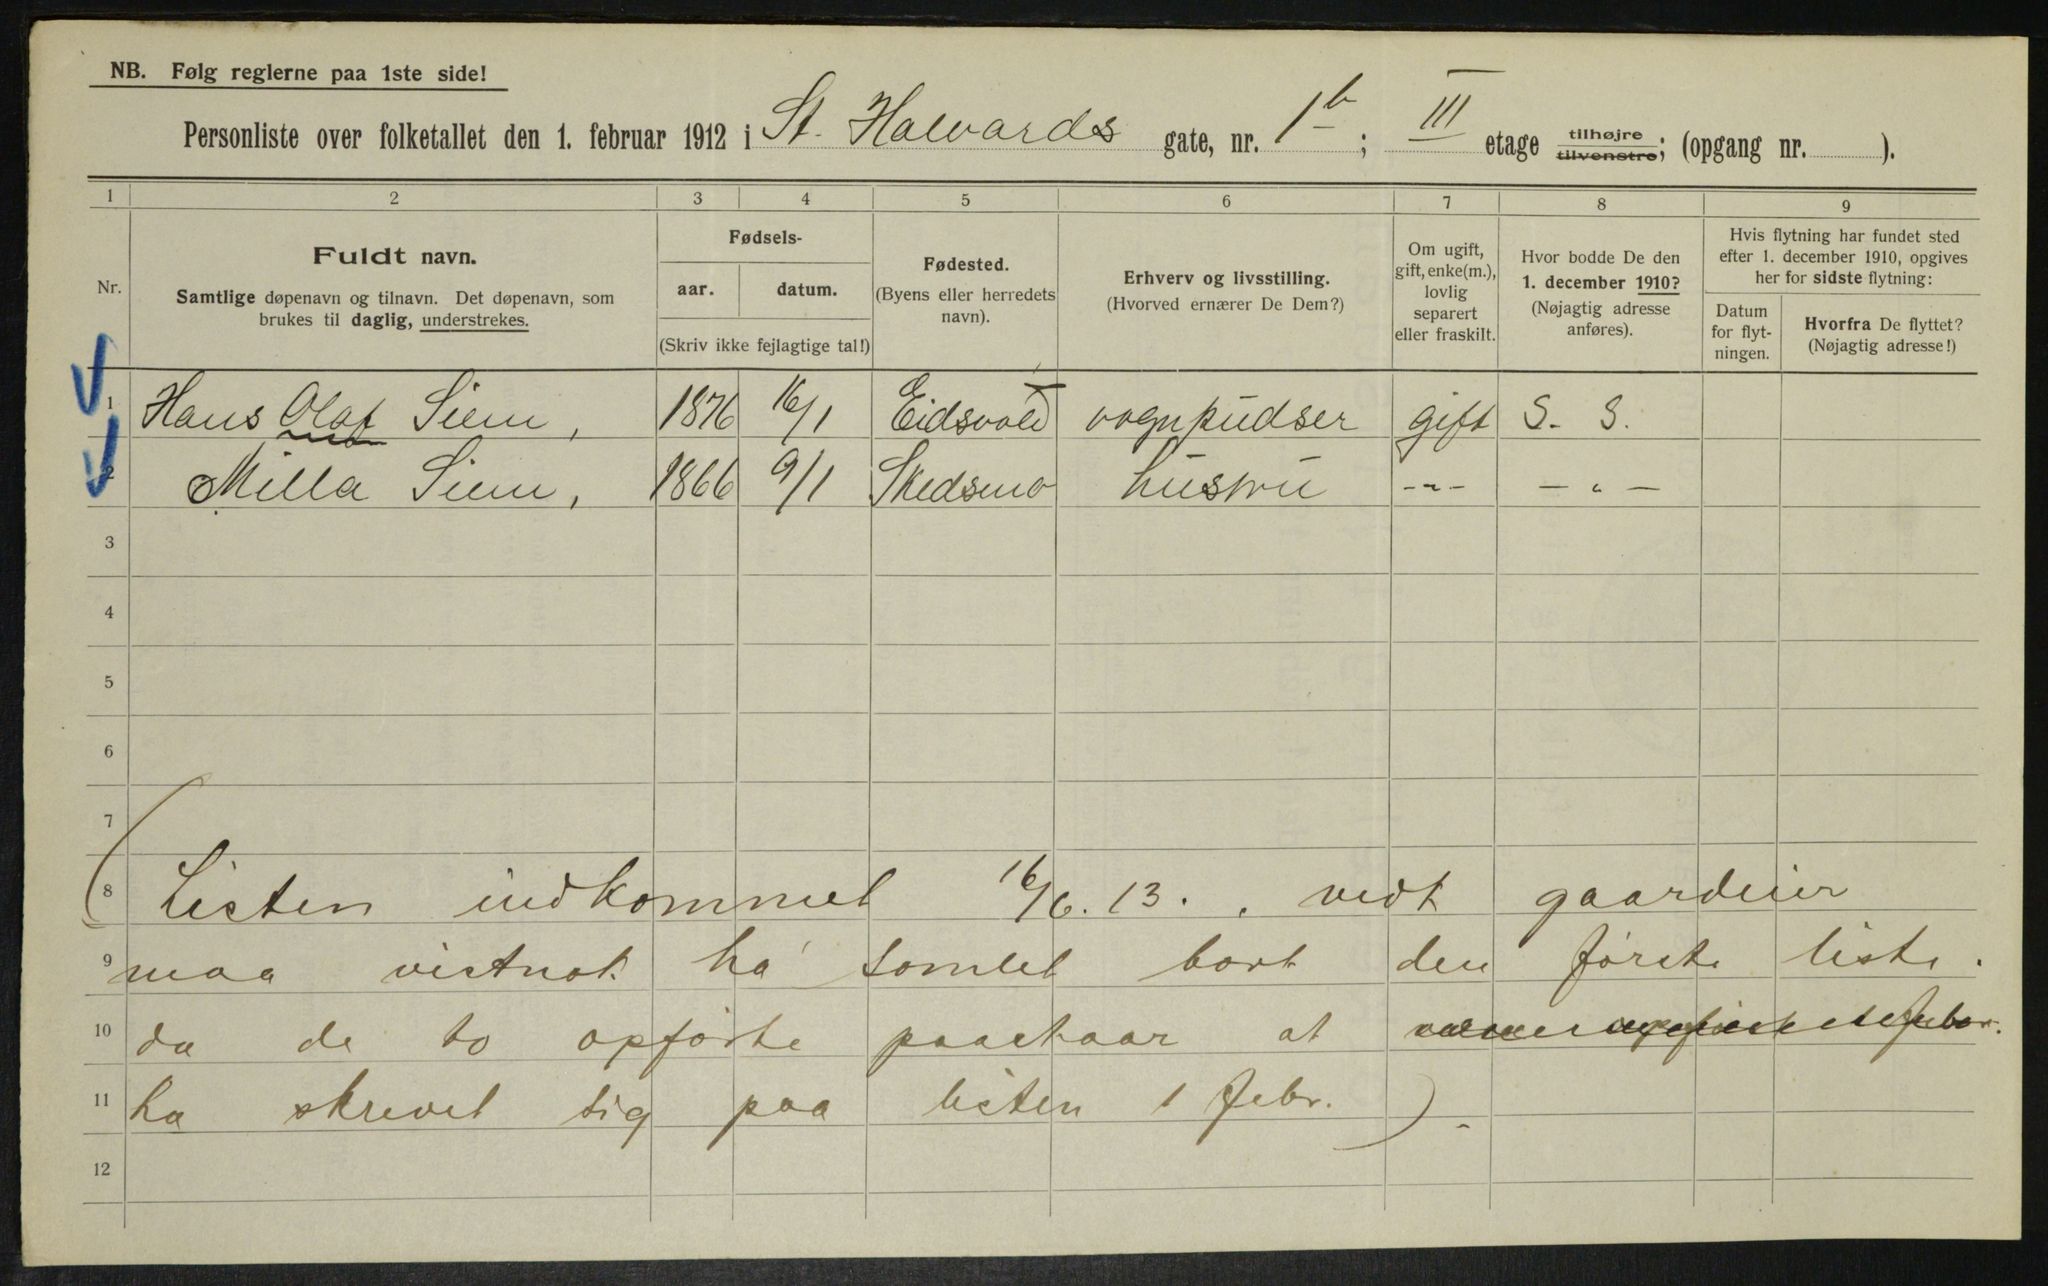 NB. Følg reglerne paa 1ste side!
Personliste over folketallet den 1. februar 1912 i St. Halvards gate, nr. 1b; III etage tilhøjre tilvenstre; (opgang nr. ).
1 2 3 4 5 6 7 8 9
Nr.
Fuldt navn.
Samtlige døpenavn og tilnavn. Det døpenavn, som
brukes til daglig, understrekes.
Fødsels-
aar. datum.
(Skriv ikke fejlagtige tal!)
Fødested.
(Byens eller herredets
navn).
Erhverv og livsstilling.
(Hvorved ernærer De Dem?)
Om ugift,
gift, enke(m.),
lovlig
separert
eller fraskilt.
Hvor bodde De den
1. december 1910?
(Nøjagtig adresse
anføres).
Hvis flytning har fundet sted
efter 1. december 1910, opgives
her for sidste flytning:
Datum
for flyt-
ningen.
Hvorfra De flyttet?
(Nøjagtig adresse!)
1 Hans Olaf Siem, 1876 16/1 Eidsvold vognpudser gift S. S.
2 Milla Siem, 1866 9/1 Skedsmo hustru -"- - " -
3
4
5
6
7
8 (Listen indkommet 16/6. 13. . vedk gaardeier
9 maa vistnok ha somlet bort den første liste.
10 da de to opførte paastaar at febr.
11 ha skrevet sig paa listen 1 febr.).
12